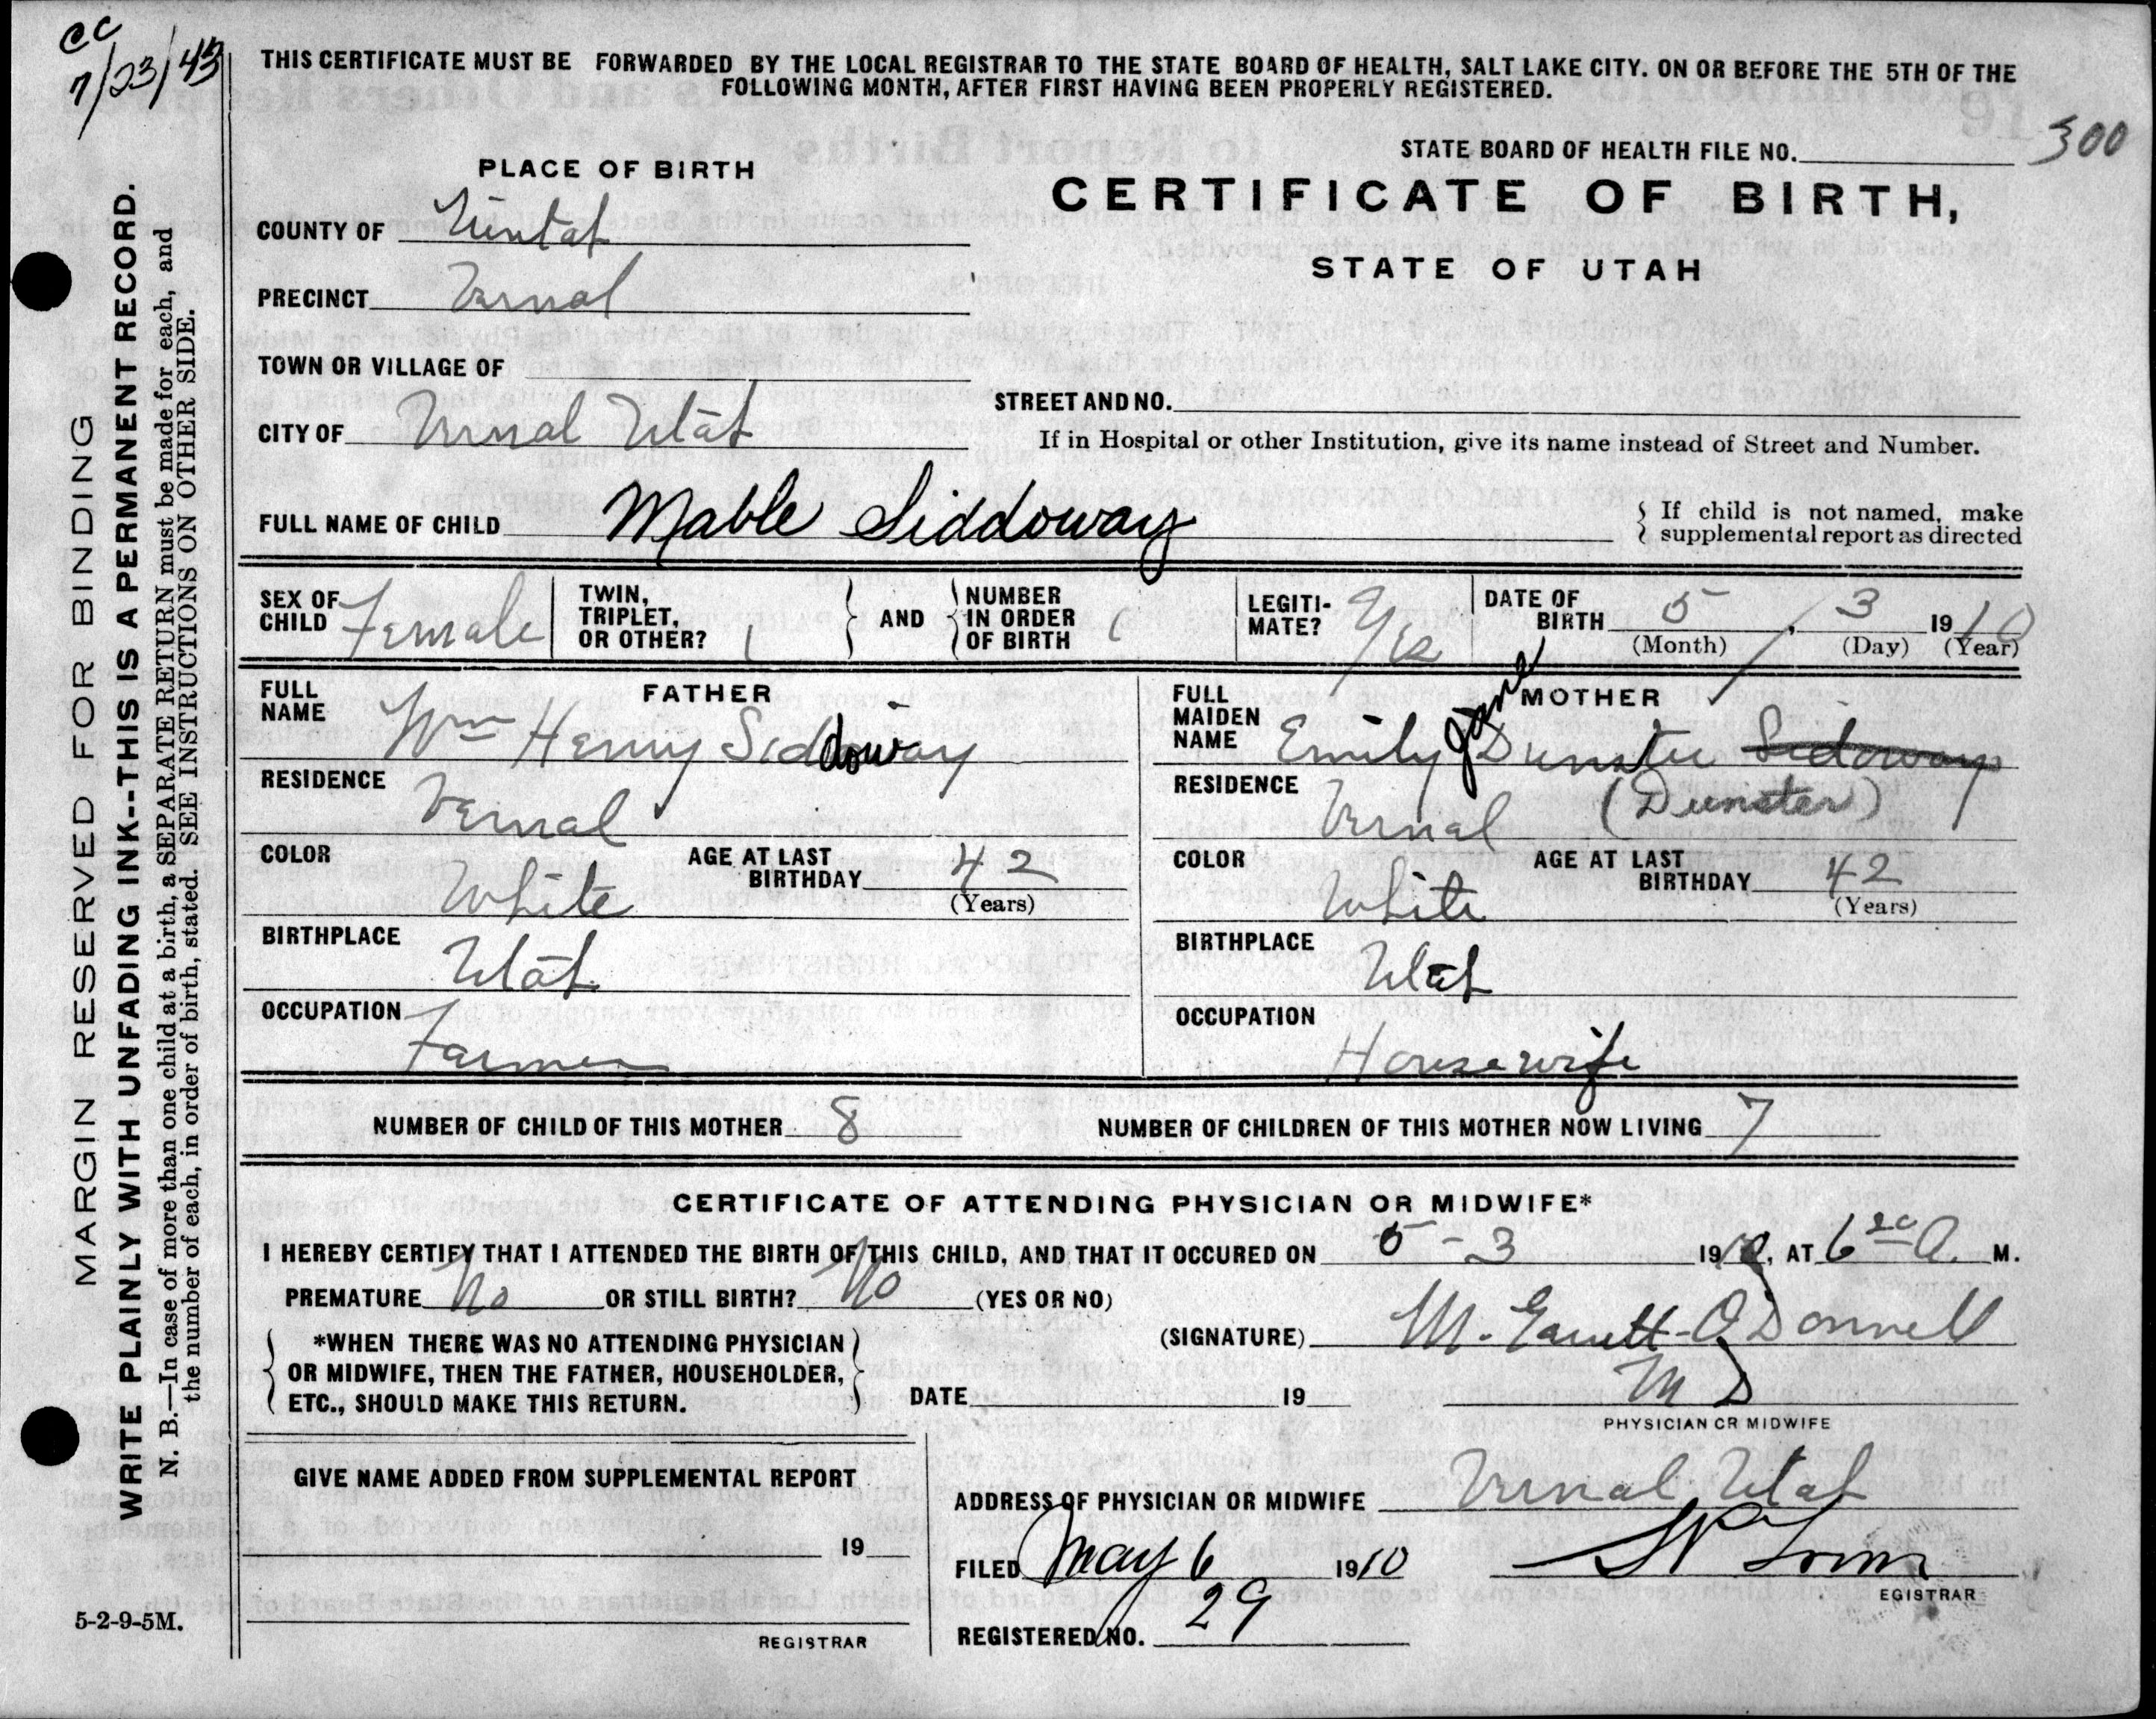 cc
7/23/43
THIS CERTIFICATE MUST BE FORWARDED BY THE LOCAL REGISTRAR TO THE STATE BOARD OF HEALTH, SALT LAKE CITY. ON OR BEFORE THE 5TH OF THE
FOLLOWING MONTH, AFTER FIRST HAVING BEEN PROPERLY REGISTERED.
STATE BOARD OF HEALTH FILE NO. 300
PLACE OF BIRTH
CERTIFICATE OF BIRTH,
STATE OF UTAH
COUNTY OF Uintah
PRECINCT Vernal
TOWN OR VILLAGE OF
STREET AND NO.
CITY OF Vernal Utah
If in Hospital or other Institution, give its name instead of Street and Number.
FULL NAME OF CHILD Mable Siddoway
If child is not named, make
supplemental report as directed
SEX OF CHILD Female
TWIN, TRIPLET, OR OTHER? 1
AND NUMBER IN ORDER OF BIRTH
LEGITI-MATE?
DATE OF BIRTH 5, 3 1910
(Month) (Day) (Year)
FATHER
FULL NAME Wm Henry Siddoway
RESIDENCE Vernal
COLOR White
AGE AT LAST BIRTHDAY 42
(Years)
BIRTHPLACE Utah
OCCUPATION Farmer
MOTHER
FULL MAIDEN NAME Emily Jane Dunster Sidoway
(Dunster)
RESIDENCE Vernal
COLOR White
AGE AT LAST BIRTHDAY 42
(Years)
BIRTHPLACE Utah
OCCUPATION Housewife
NUMBER OF CHILD OF THIS MOTHER 8 NUMBER OF CHILDREN OF THIS MOTHER NOW LIVING 7
CERTIFICATE OF ATTENDING PHYSICIAN OR MIDWIFE*
I HEREBY CERTIFY THAT I ATTENDED THE BIRTH OF THIS CHILD, AND THAT IT OCCURED ON 5-3 1910, AT 6 A. M.
PREMATURE No OR STILL BIRTH? No (YES OR NO)
*WHEN THERE WAS NO ATTENDING PHYSICIAN
OR MIDWIFE, THEN THE FATHER, HOUSEHOLDER,
ETC., SHOULD MAKE THIS RETURN.
(SIGNATURE) M. Garrett-O'Donnell
M D
DATE 19
PHYSICIAN OR MIDWIFE
GIVE NAME ADDED FROM SUPPLEMENTAL REPORT
19
REGISTRAR
ADDRESS OF PHYSICIAN OR MIDWIFE Vernal Utah
FILED May 6 1910
EGISTRAR
REGISTERED NO. 29
5-2-9-5M.
MARGIN RESERVED FOR BINDING
WRITE PLAINLY WITH UNFADING INK--THIS IS A PERMANENT RECORD.
N. B.—In case of more than one child at a birth, a SEPARATE RETURN must be made for each, and
the number of each, in order of birth, stated. SEE INSTRUCTIONS ON OTHER SIDE.